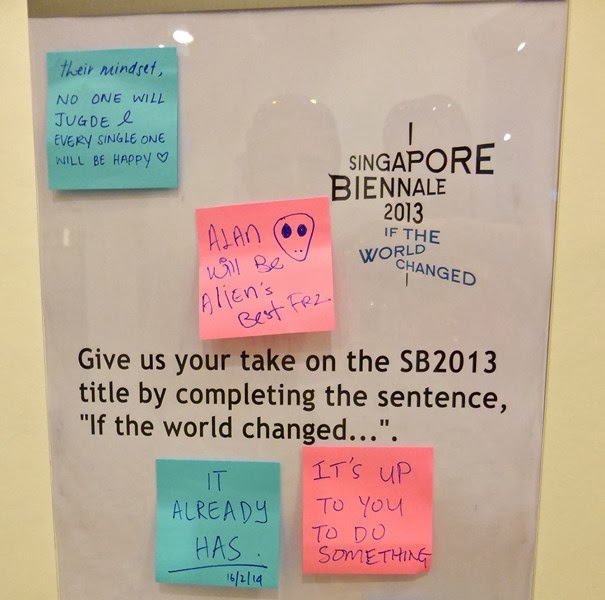 their mindset,
NO ONE WILL
JUGDE &
EVERY SINGLE ONE
WILL BE HAPPY ♡
SINGAPORE
BIENNALE
2013
IF THE
WORLD
CHANGED
ALAN
Will Be
Alien's
Best FRZ.
Give us your take on the SB2013
title by completing the sentence,
"If the world changed...".
IT
ALREADY
HAS.
16/2/14
IT'S UP
TO YOU
TO DO
SOMETHING